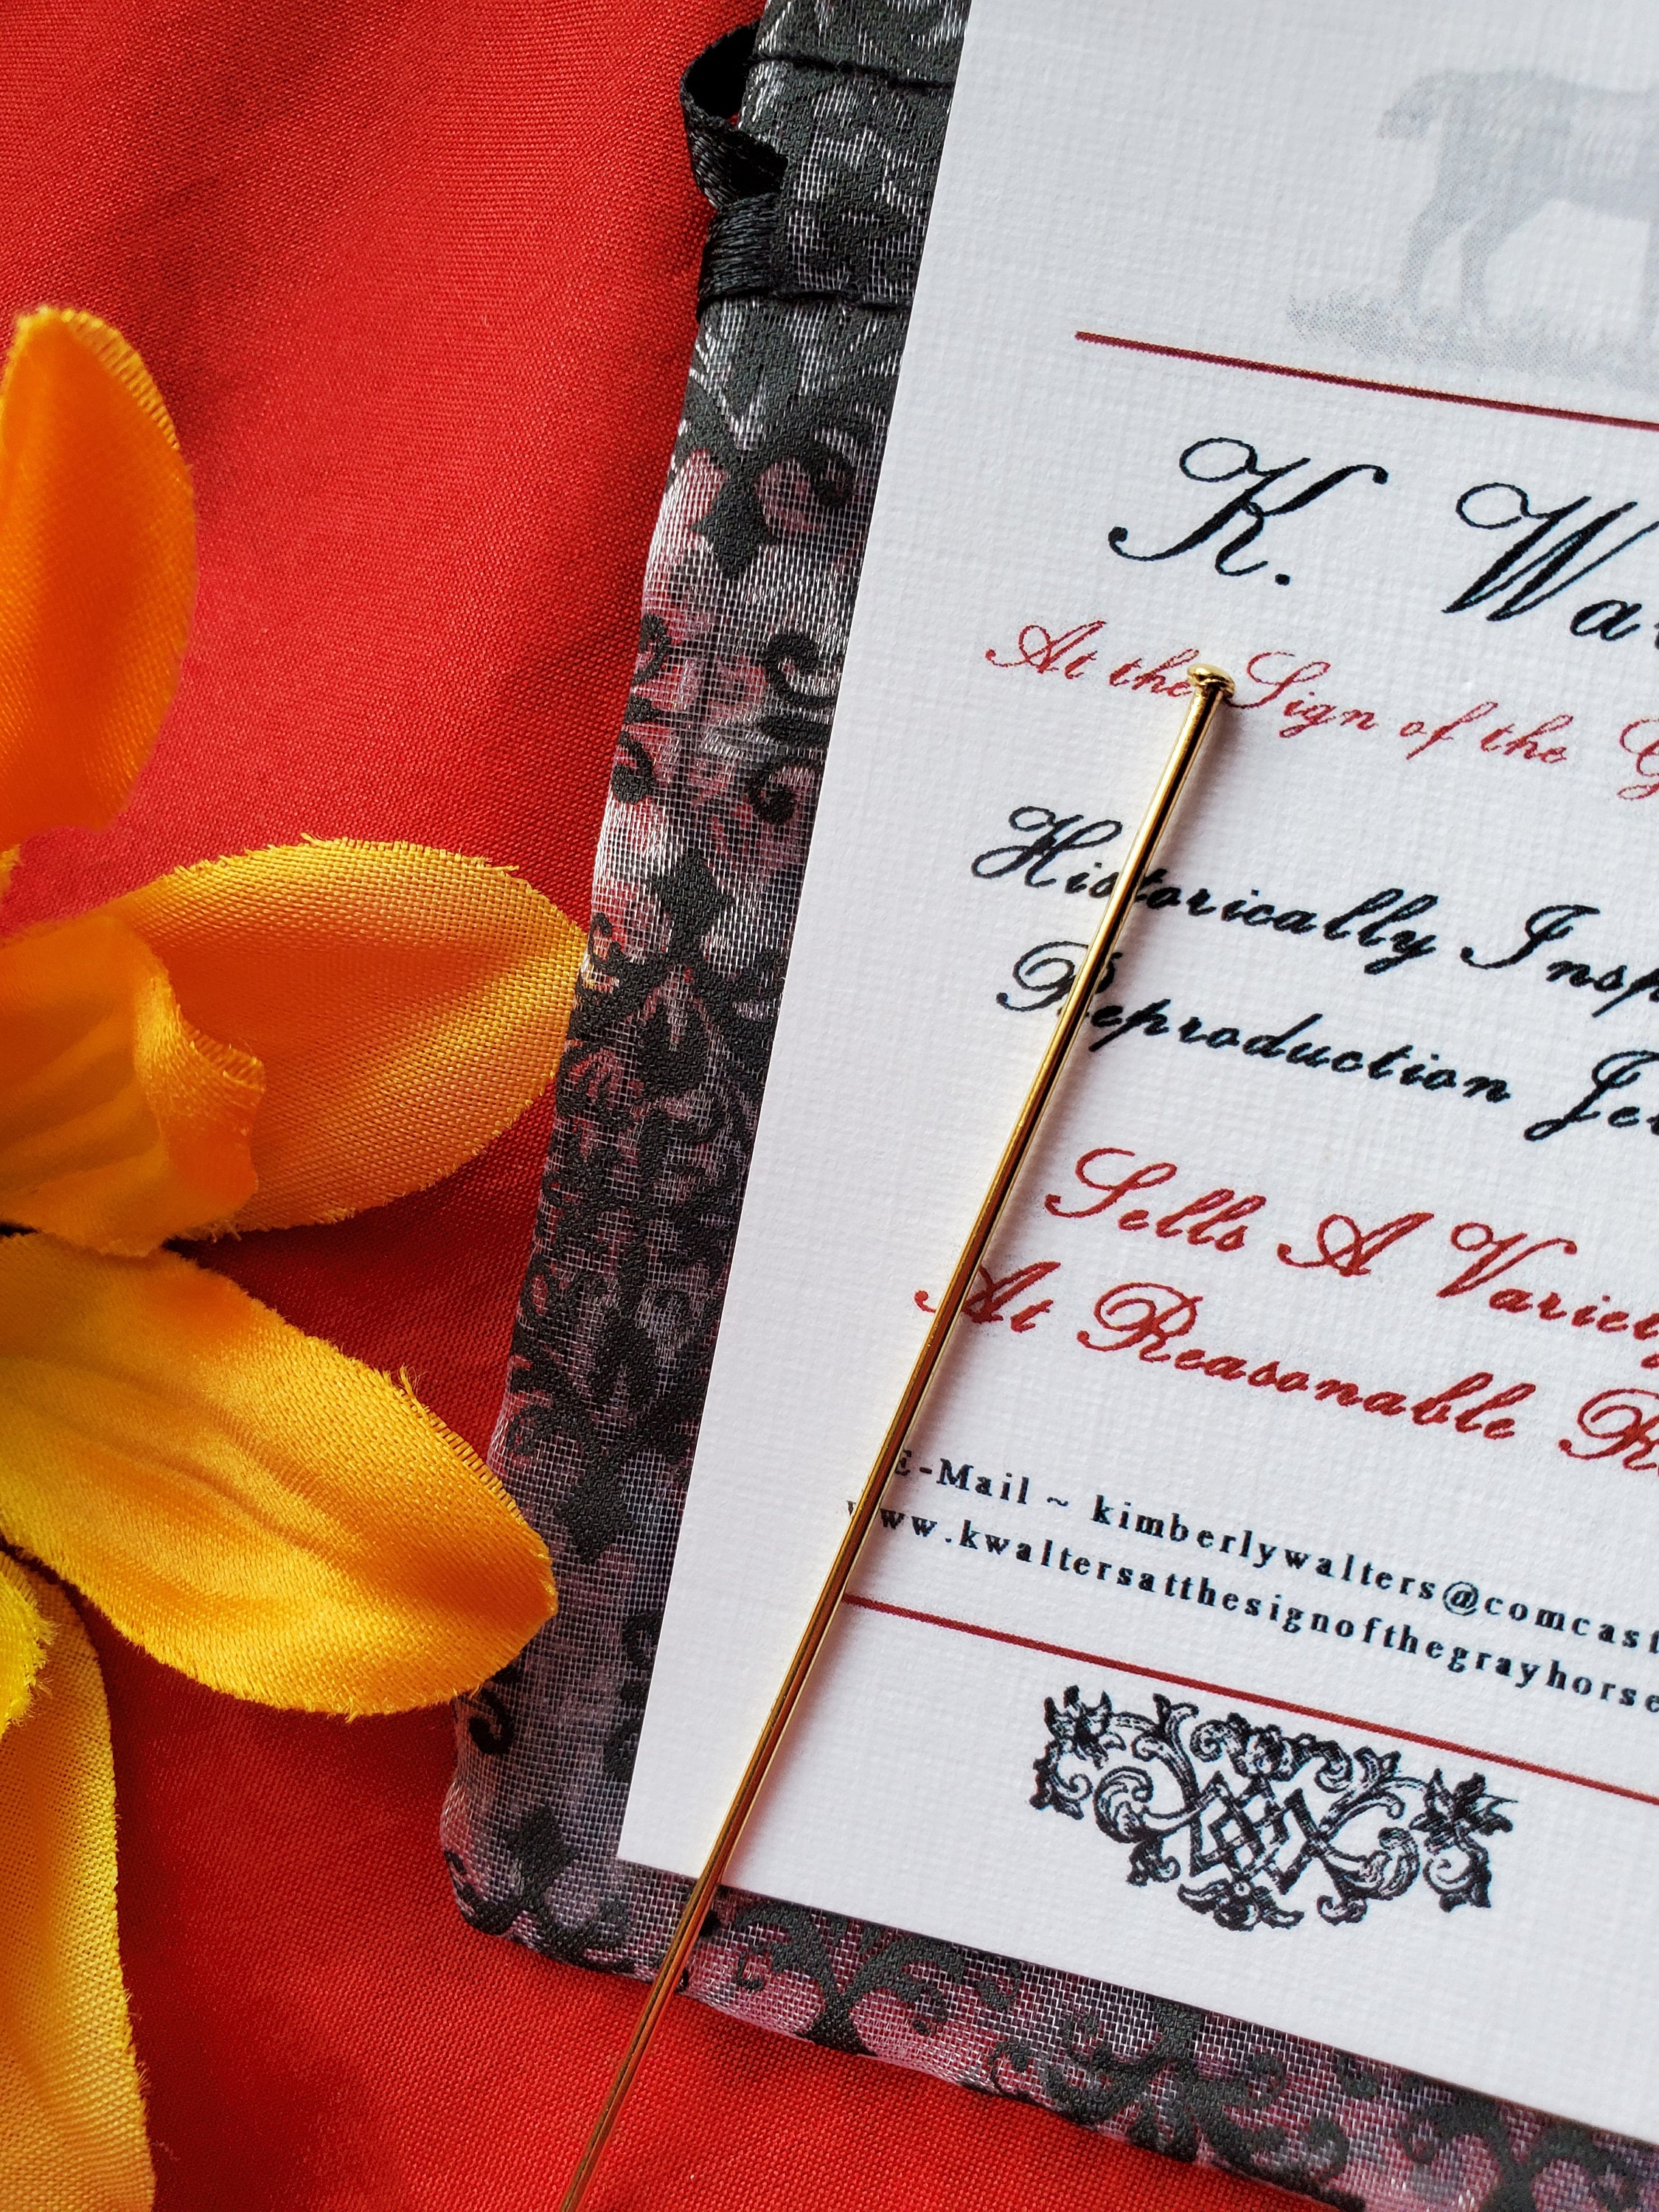 K. Wa
At the Sign of the G
Historically Insp
Reproduction Je
Sells A Variety
At Reasonable R
E-Mail ~ kimberlywalters@comcast
www.kwaltersatthesignofthegrayhorse